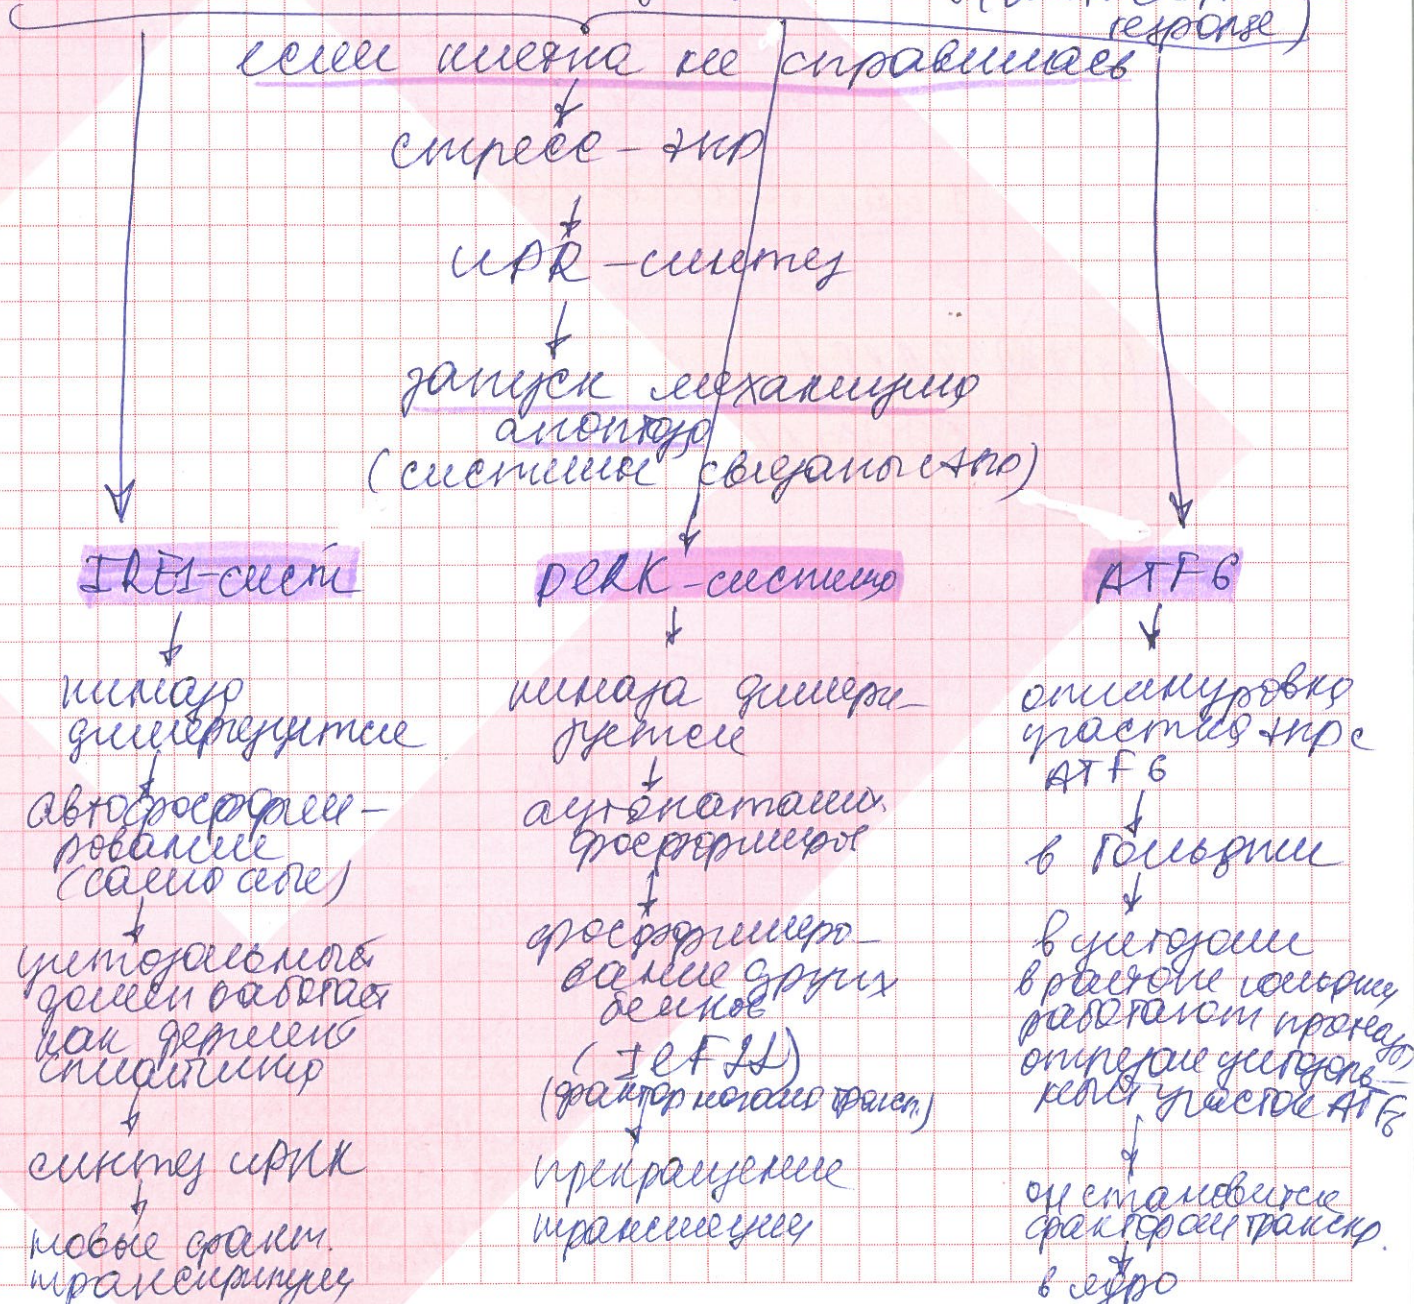 response)
если клетка не справилась
стресс - ЭПР
UPR - синтез
запуск механизма
апоптоза
(системы связаны с ЭПР)
IRE1-сист
киназа
димеризуется
автофосфорили-
рование
(сами себя)
цитозольный
домен работает
как фермент
сплайсинга
синтез иРНК
новые факт.
транскрипции
PERK - система
киназа димери-
зуется
фосфорилиро-
вание других
белков
(IeF2α)
(фактор начала трансл.)
прекращение
трансляции
ATF6
отшнуровка
участка ЭПР с
ATF6
в Гольджи
в цитозоли
в районе Гольджи
работают протеазы
отрезали цитозоль-
ный участок ATF6
он становится
фактором транскр.
в ядро